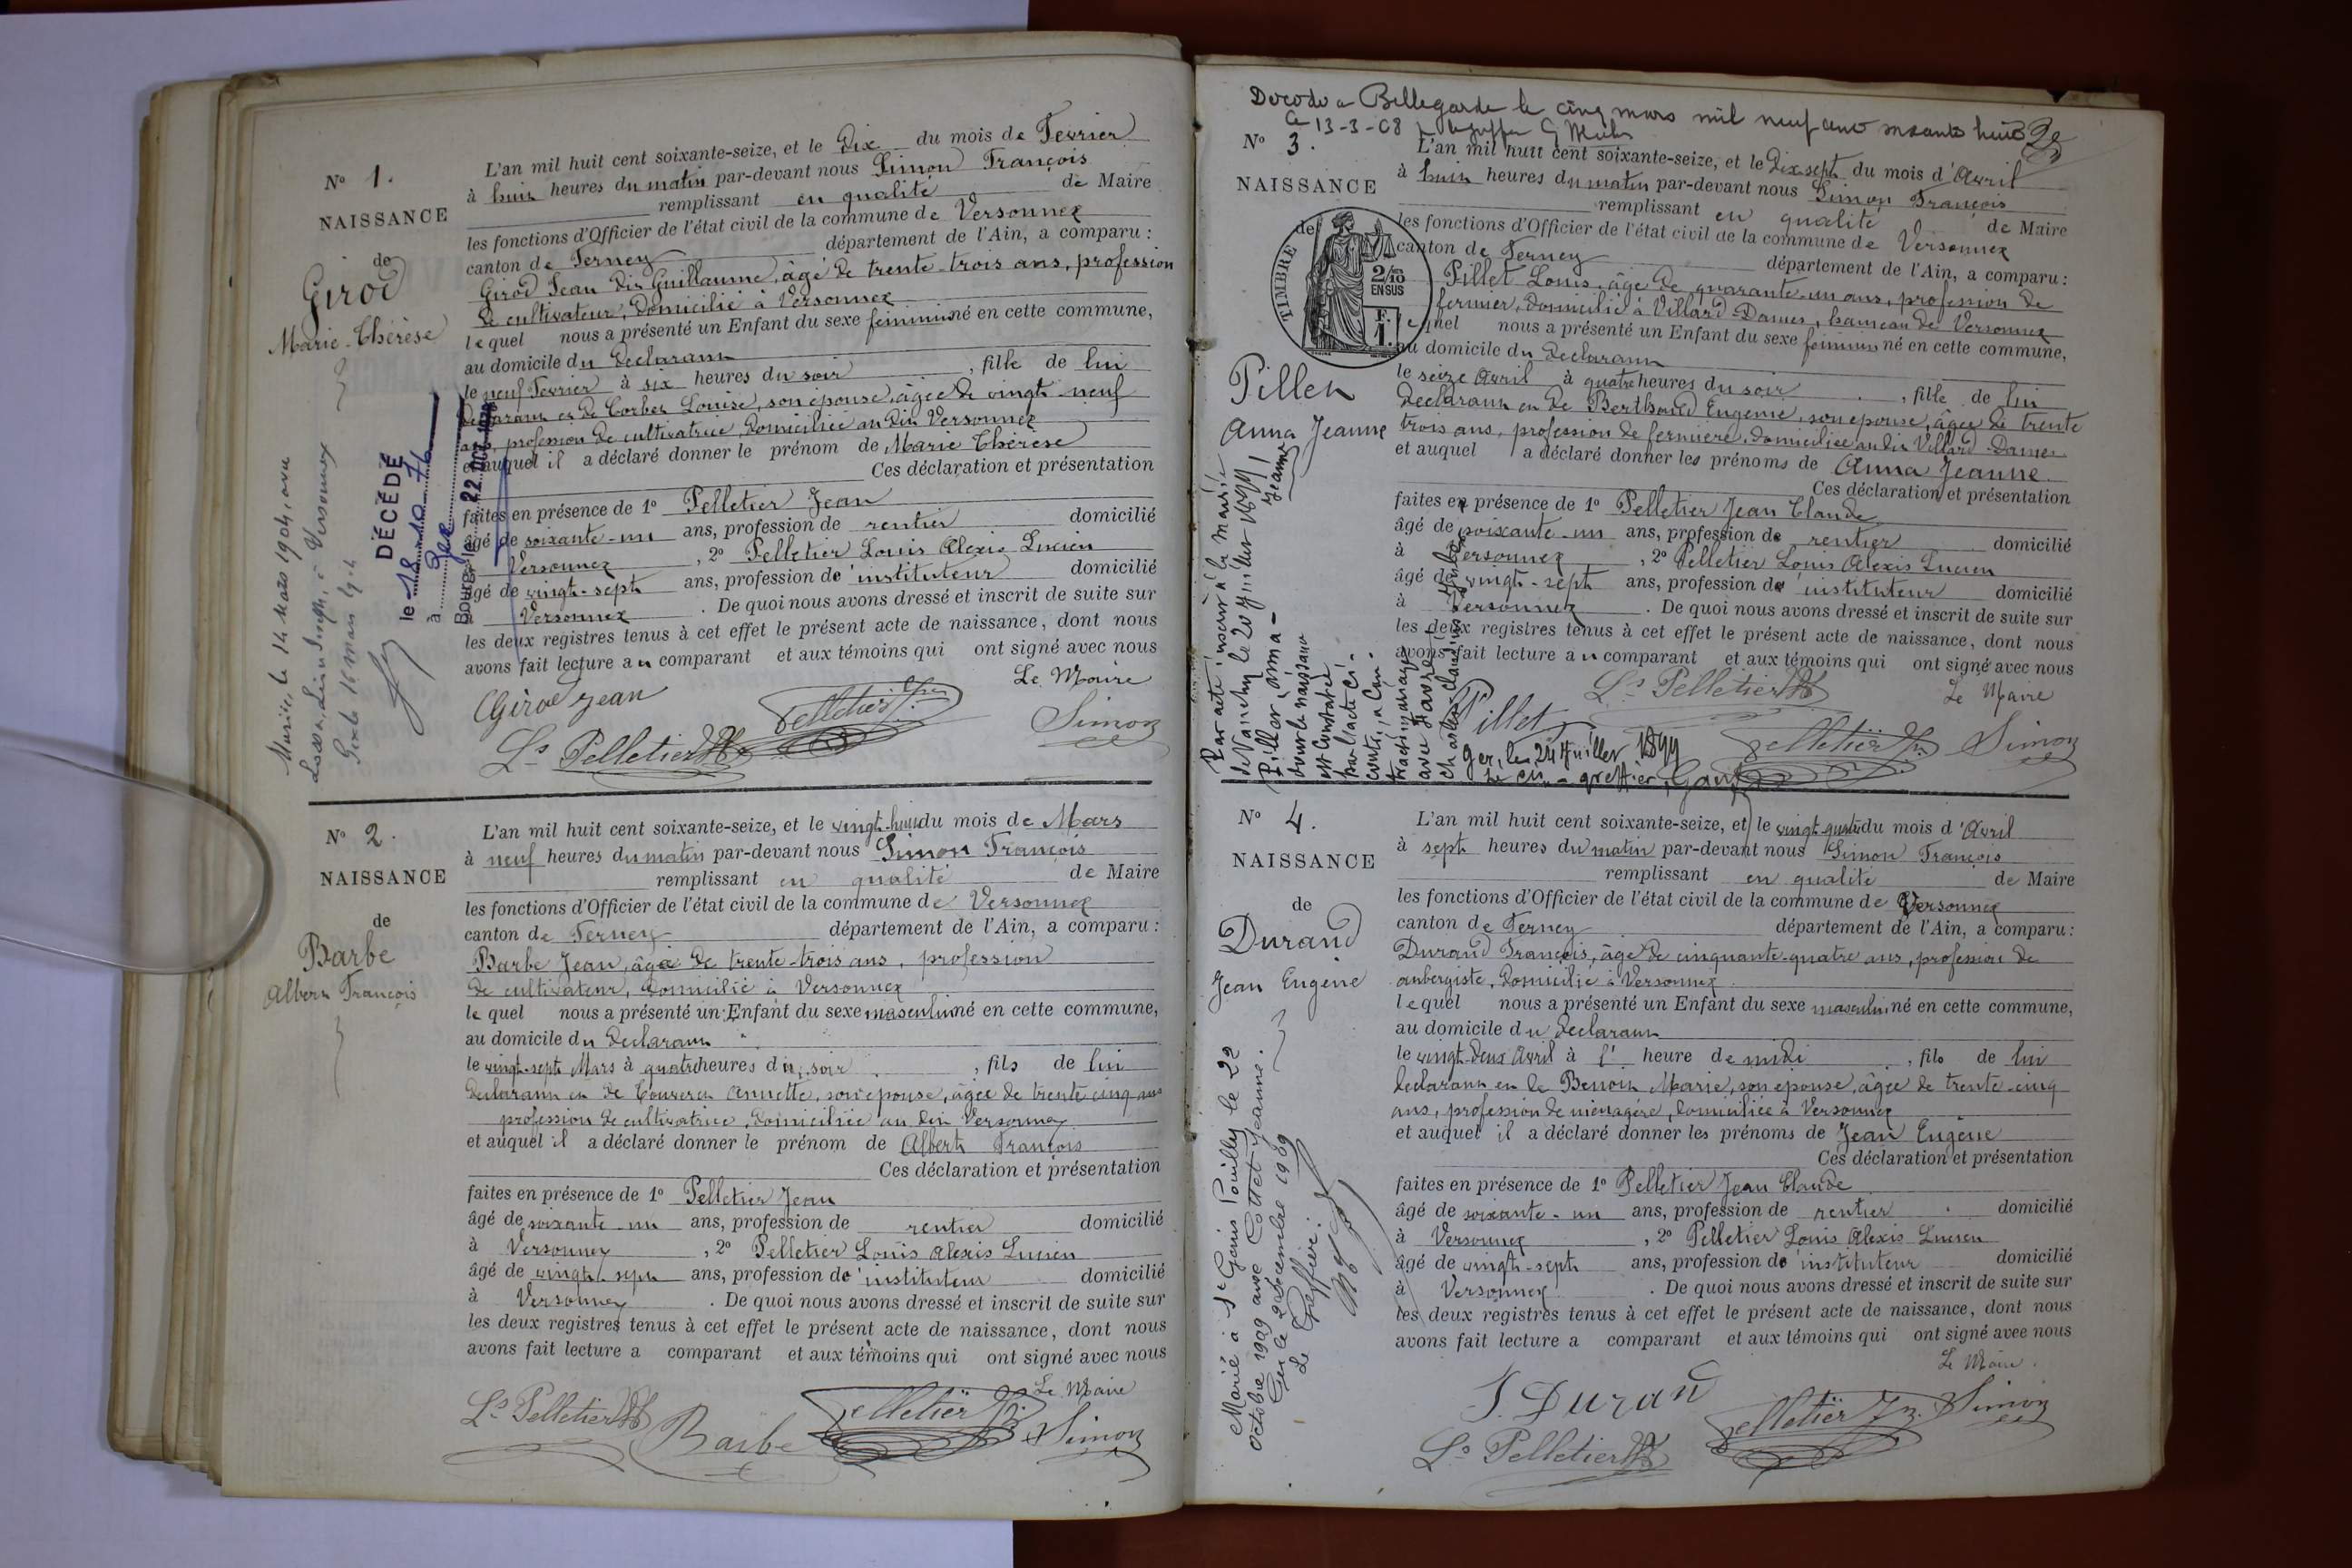 N° 1.
NAISSANCE
de
Girod
Marie-Thérèse
L'an mil huit cent soixante-seize, et le Dix du mois de Fevrier
à huit heures du matin par-devant nous Simon François
remplissant en qualité de Maire
les fonctions d'Officier de l'état civil de la commune de Versonnex
canton de Ferney département de l'Ain, a comparu :
Girod Jean dit Guillaume, âgé de trente-trois ans, profession
de cultivateur, domicilié à Versonnex
lequel nous a présenté un Enfant du sexe féminin né en cette commune,
au domicile du Declarant
le neuf Fevrier à six heures du soir , fille de lui
declarant et de Corbet Louise, son épouse, âgée de vingt-neuf
ans, profession de cultivatrice, domiciliée au dit Versonnex
et auquel il a déclaré donner le prénom de Marie Thérèse
Ces déclaration et présentation
faites en présence de 1° Pelletier Jean
âgé de soixante-un ans, profession de rentier domicilié
à Versonnex , 2° Pelletier Louis Alexis Lucien
âgé de vingt-sept ans, profession de instituteur domicilié
à Versonnex . De quoi nous avons dressé et inscrit de suite sur
les deux registres tenus à cet effet le présent acte de naissance, dont nous
avons fait lecture au comparant et aux témoins qui ont signé avec nous
Le Maire
Girod Jean
Pelletier Jn
Simon
Ls Pelletier
Mariée, le 14 Mars 1904, avec
à Versonnex
Gex le 16 mars 1904
DÉCÉDÉ
le 18-10-76
à Gex
Bourg, le 22 OCT
N° 2.
NAISSANCE
de
Barbe
Albert François
L'an mil huit cent soixante-seize, et le vingt-huit du mois de Mars
à neuf heures du matin par-devant nous Simon François
remplissant en qualité de Maire
les fonctions d'Officier de l'état civil de la commune de Versonnex
canton de Ferney département de l'Ain, a comparu :
Barbe Jean, âgé de trente-trois ans, profession
de cultivateur, domicilié à Versonnex
lequel nous a présenté un Enfant du sexe masculin né en cette commune,
au domicile du Declarant
le vingt-sept Mars à quatre heures du soir , fils de lui
declarant et de Annette, son épouse, âgée de trente cinq ans
profession de cultivatrice, domiciliée au dit Versonnex
et auquel il a déclaré donner le prénom de Albert François
Ces déclaration et présentation
faites en présence de 1° Pelletier Jean
âgé de soixante-un ans, profession de rentier domicilié
à Versonnex , 2° Pelletier Louis Alexis Lucien
âgé de vingt-sept ans, profession de instituteur domicilié
à Versonnex . De quoi nous avons dressé et inscrit de suite sur
les deux registres tenus à cet effet le présent acte de naissance, dont nous
avons fait lecture a comparant et aux témoins qui ont signé avec nous
Le Maire
Ls Pelletier
Barbe
Pelletier Jn
Simon
Decede a Bellegarde le cinq mars mil neuf cent soixante huit
Le 13-3-68
N° 3.
NAISSANCE
de
TIMBRE
2/10
EN SUS
F.
1.
Pillet
Anna Jeanne
L'an mil huit cent soixante-seize, et le Dix-sept du mois d'Avril
à huit heures du matin par-devant nous Simon François
remplissant en qualité de Maire
les fonctions d'Officier de l'état civil de la commune de Versonnex
canton de Ferney département de l'Ain, a comparu :
Pillet Louis, âgé de quarante-un ans, profession de
fermier, domicilié à Villard Dames, hameau de Versonnex
lequel nous a présenté un Enfant du sexe féminin né en cette commune,
au domicile du Declarant
le seize Avril à quatre heures du soir , fille de lui
declarant et de Berthoud Eugénie, son épouse, âgée de trente
trois ans, profession de fermière, domiciliée au dit Villard Dames
et auquel a déclaré donner les prénoms de Anna Jeanne
Ces déclaration et présentation
faites en présence de 1° Pelletier Jean Claude
âgé de soixante-un ans, profession de rentier domicilié
à Versonnex , 2° Pelletier Louis Alexis Lucien
âgé de vingt-sept ans, profession de instituteur domicilié
à Versonnex . De quoi nous avons dressé et inscrit de suite sur
les deux registres tenus à cet effet le présent acte de naissance, dont nous
avons fait lecture au comparant et aux témoins qui ont signé avec nous
Ls Pelletier
Le Maire
Pillet
Pelletier Jn
Simon
Par acte inscrit à la mairie
de le 20 juillet 1899
Pillet, Anna-Jeanne
dont la naissance
est constatée
par l'acte ci-
contre, a con-
tracté mariage
avec Favre
Gex, le 24 Juillet 1899
Le greffier,
N° 4.
NAISSANCE
de
Durand
Jean Eugène
L'an mil huit cent soixante-seize, et le vingt-quatre du mois d'Avril
à sept heures du matin par-devant nous Simon François
remplissant en qualité de Maire
les fonctions d'Officier de l'état civil de la commune de Versonnex
canton de Ferney département de l'Ain, a comparu :
Durand François, âgé de cinquante-quatre ans, profession de
aubergiste, domicilié à Versonnex
lequel nous a présenté un Enfant du sexe masculin né en cette commune,
au domicile du Declarant
le vingt-deux Avril à l' heure de midi , fils de lui
declarant et de Benoit Marie, son épouse, âgée de trente-cinq
ans, profession de ménagère, domiciliée à Versonnex
et auquel il a déclaré donner les prénoms de Jean Eugène
Ces déclaration et présentation
faites en présence de 1° Pelletier Jean Claude
âgé de soixante-un ans, profession de rentier domicilié
à Versonnex , 2° Pelletier Louis Alexis Lucien
âgé de vingt-sept ans, profession de instituteur domicilié
à Versonnex . De quoi nous avons dressé et inscrit de suite sur
les deux registres tenus à cet effet le présent acte de naissance, dont nous
avons fait lecture a comparant et aux témoins qui ont signé avec nous
Le Maire.
J. Durand
Pelletier Jn.
Simon
Ls Pelletier
Marié à St Genis Pouilly le 22
octobre 1909 avec Cottet Jeanne.
Gex le 2 décembre 1909
Le Greffier :